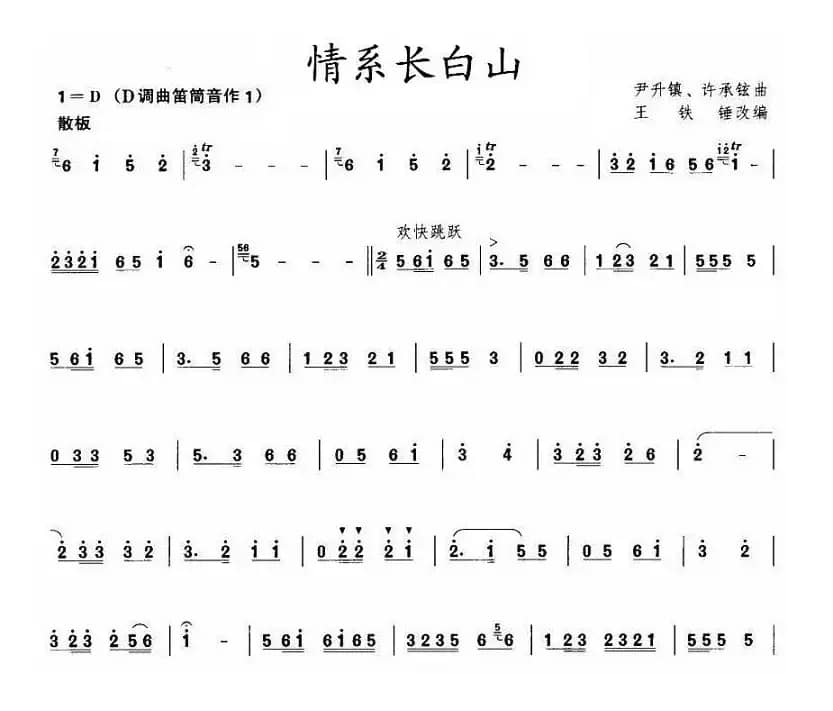 情系长白山
1=D （D调曲笛筒音作1）
尹升镇、许承铉曲
散板
王 铁 锤改编
7 6 1 5 2 | 2 3 tr - - - | 7 6 1 5 2 | 1 2 tr - - - | 3 2 1 6 5 6 1 2 1 tr - |
2 3 2 1 6 5 1 6 - | 56 5 - - - || 2/4 欢快跳跃 5 6 1 6 5 | > 3. 5 6 6 | 1 2 3 2 1 | 5 5 5 5 |
5 6 1 6 5 | 3. 5 6 6 | 1 2 3 2 1 | 5 5 5 3 | 0 2 2 3 2 | 3. 2 1 1 |
0 3 3 5 3 | 5. 3 6 6 | 0 5 6 1 | 3 4 | 3 2 3 2 6 | 2 - |
2 3 3 3 2 | 3. 2 1 1 | 0 2 2 2 1 | 2. 1 5 5 | 0 5 6 1 | 3 2 |
3 2 3 2 5 6 | 1 - | 5 6 1 6 1 6 5 | 3 2 3 5 6 5 6 | 1 2 3 2 3 2 1 | 5 5 5 5 |